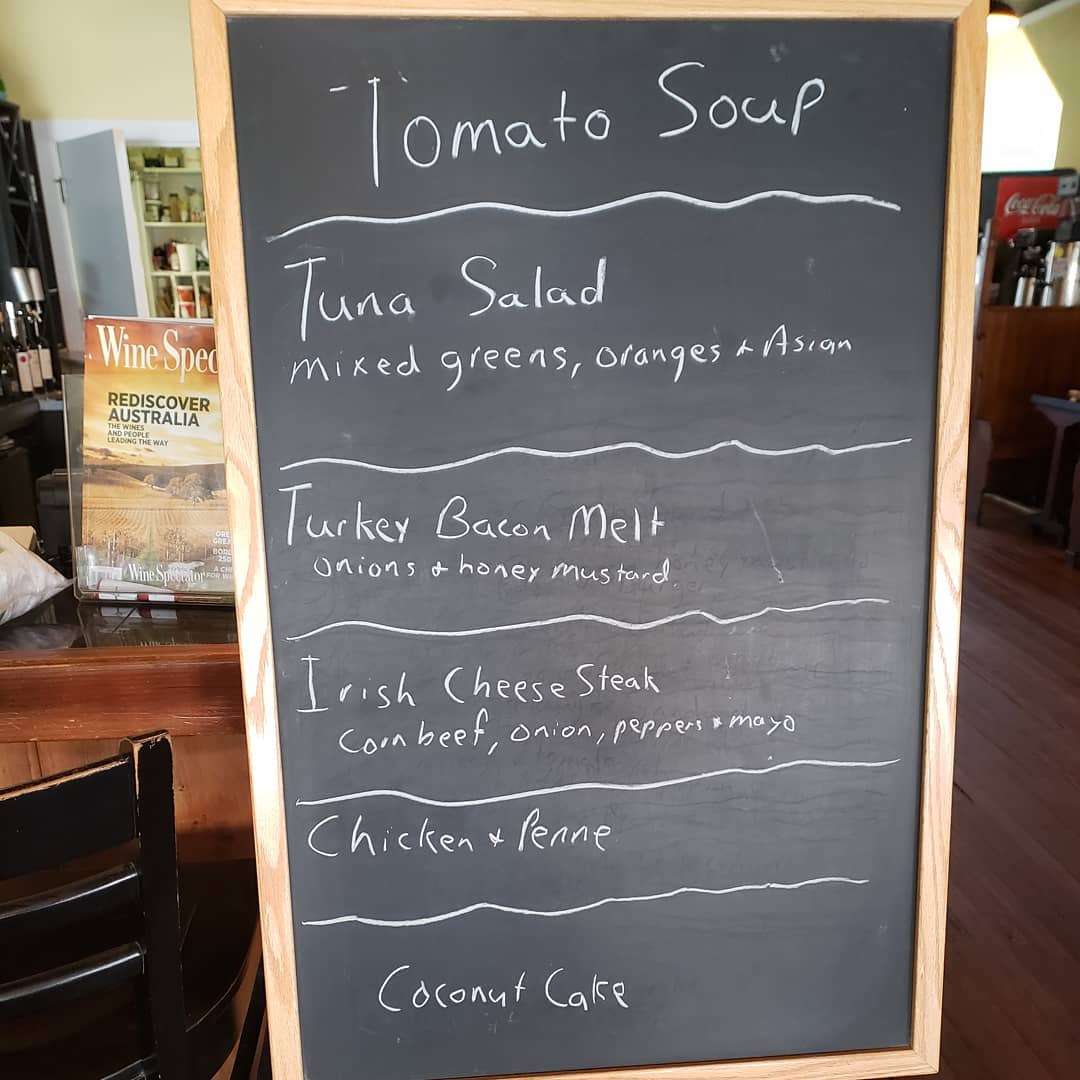 Tomato Soup
Tuna Salad
mixed greens, oranges & Asian
Turkey Bacon Melt
onions & honey mustard
Irish Cheese Steak
Corn beef, onion, peppers & mayo
Chicken & Penne
Coconut Cake
Wine Spec
REDISCOVER
AUSTRALIA
THE WINES
AND PEOPLE
LEADING THE WAY
Wine Spectator
Coca-Cola